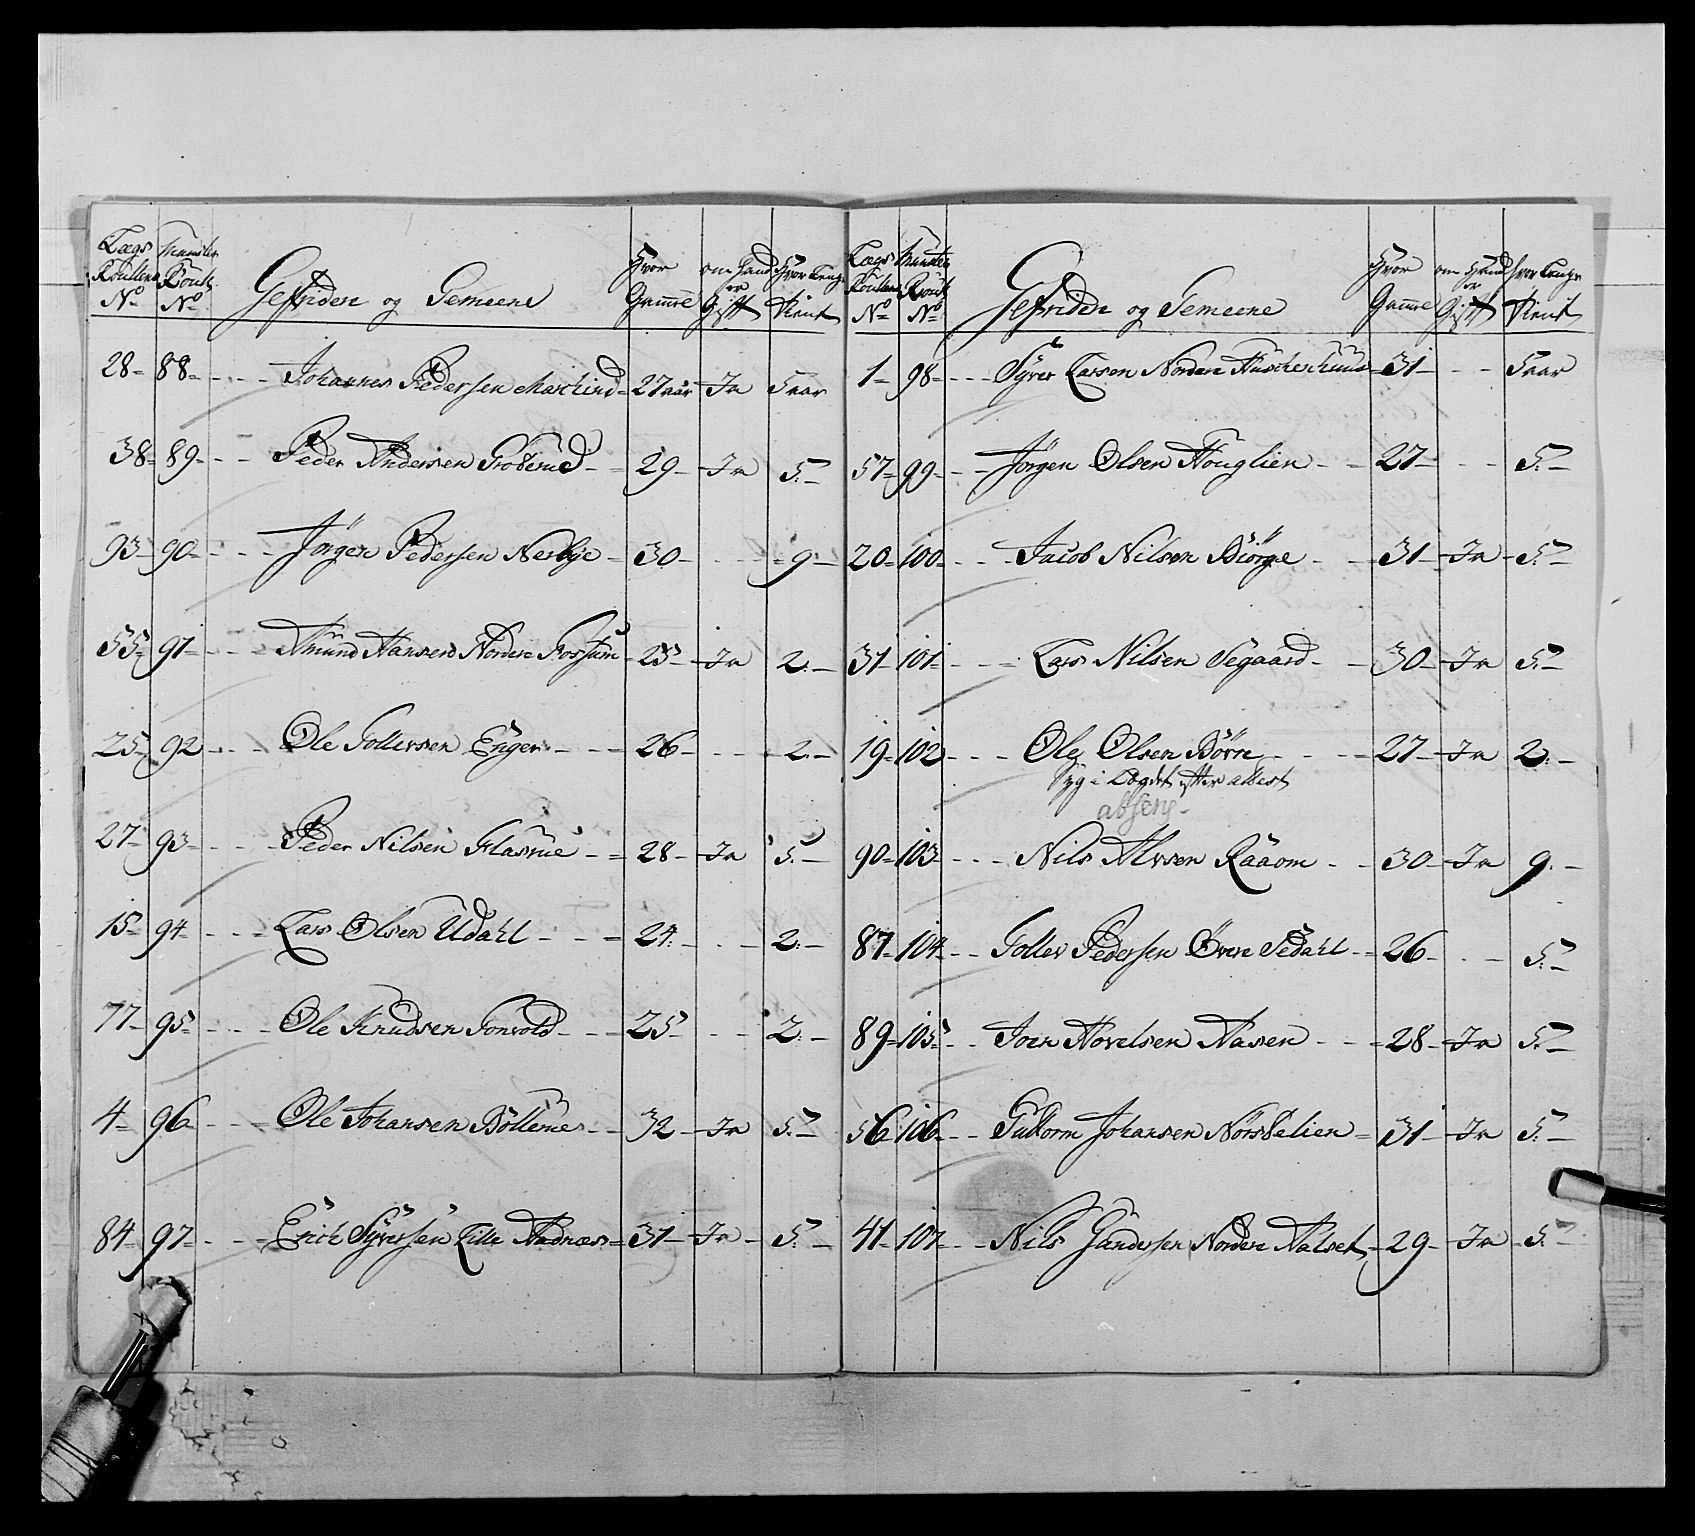 Lægs Roullens No Munster Roul: No Gefriden og Gemeene Hvor Gamme om Hand er Gift Hvor Længe Tient
28 - 88 - Johannes Pedersen - 27 aar - Ja 5 aar
38 - 89 - Peder Andersen - 29 - Ja 5 -
93 - 90 - Jörgen Pedersen Nerbye - 30 - - 9 -
55 - 91 - Amund Hansen Nordere Fossum - 25 - Ja 2 -
25 - 92 - Ole Gollersen Enger - 26 - - 2 -
27 - 93 - Peder Nilsen - 28 - Ja 5 -
15 - 94 - Lars Olsen Udahl - 24 - - 2 -
77 - 95 - Ole Knudsen Tonvold - 25 - - 2 -
4 - 96 - Ole Johansen - 32 - Ja 5 -
84 - 97 - Erich Syversen Lille - 31 - Ja - 5 -
Lægs Roullens No Munster Roul: No Gefriden og Gemeene Hvor Gamme om Hand er Gift Hvor Længe Tient
1 - 98 - Syver Larsen Nordere - 31 - - 5 aar
57 - 99 - Jörgen Olsen Houglien - 27 - - 5 -
20 - 100 - Jacob Nilsen Biörge - 31 - Ja - 5 -
31 101 - Lars Nilsen Segaard - 30 - Ja 5 -
19 - 102 - Ole Olsen - 27 - Ja 2 -
Syg i Lægdet efter attest
absens -
90 - 103 - Nils Raaom - 30 - Ja 9 -
87 - 104 - Goller Pedersen Övere Sedahl - 26 - - 5 -
89 - 105 - Joen Hovelsen Aasen - 28 - Ja 5 -
56 - 106 - Guttorm Johansen - 31 - Ja 5 -
41 - 107 - Nils Gundersen Nordere Aalset - 29 - Ja 5 -